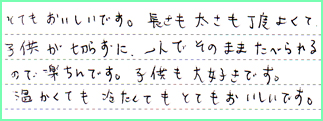 とてもおいしいです。長さも太さも丁度よくて
子供が切らずに、一人でそのままたべられる
ので楽ちんです。子供も大好きです。
温かくても冷たくてもとてもおいしいです。